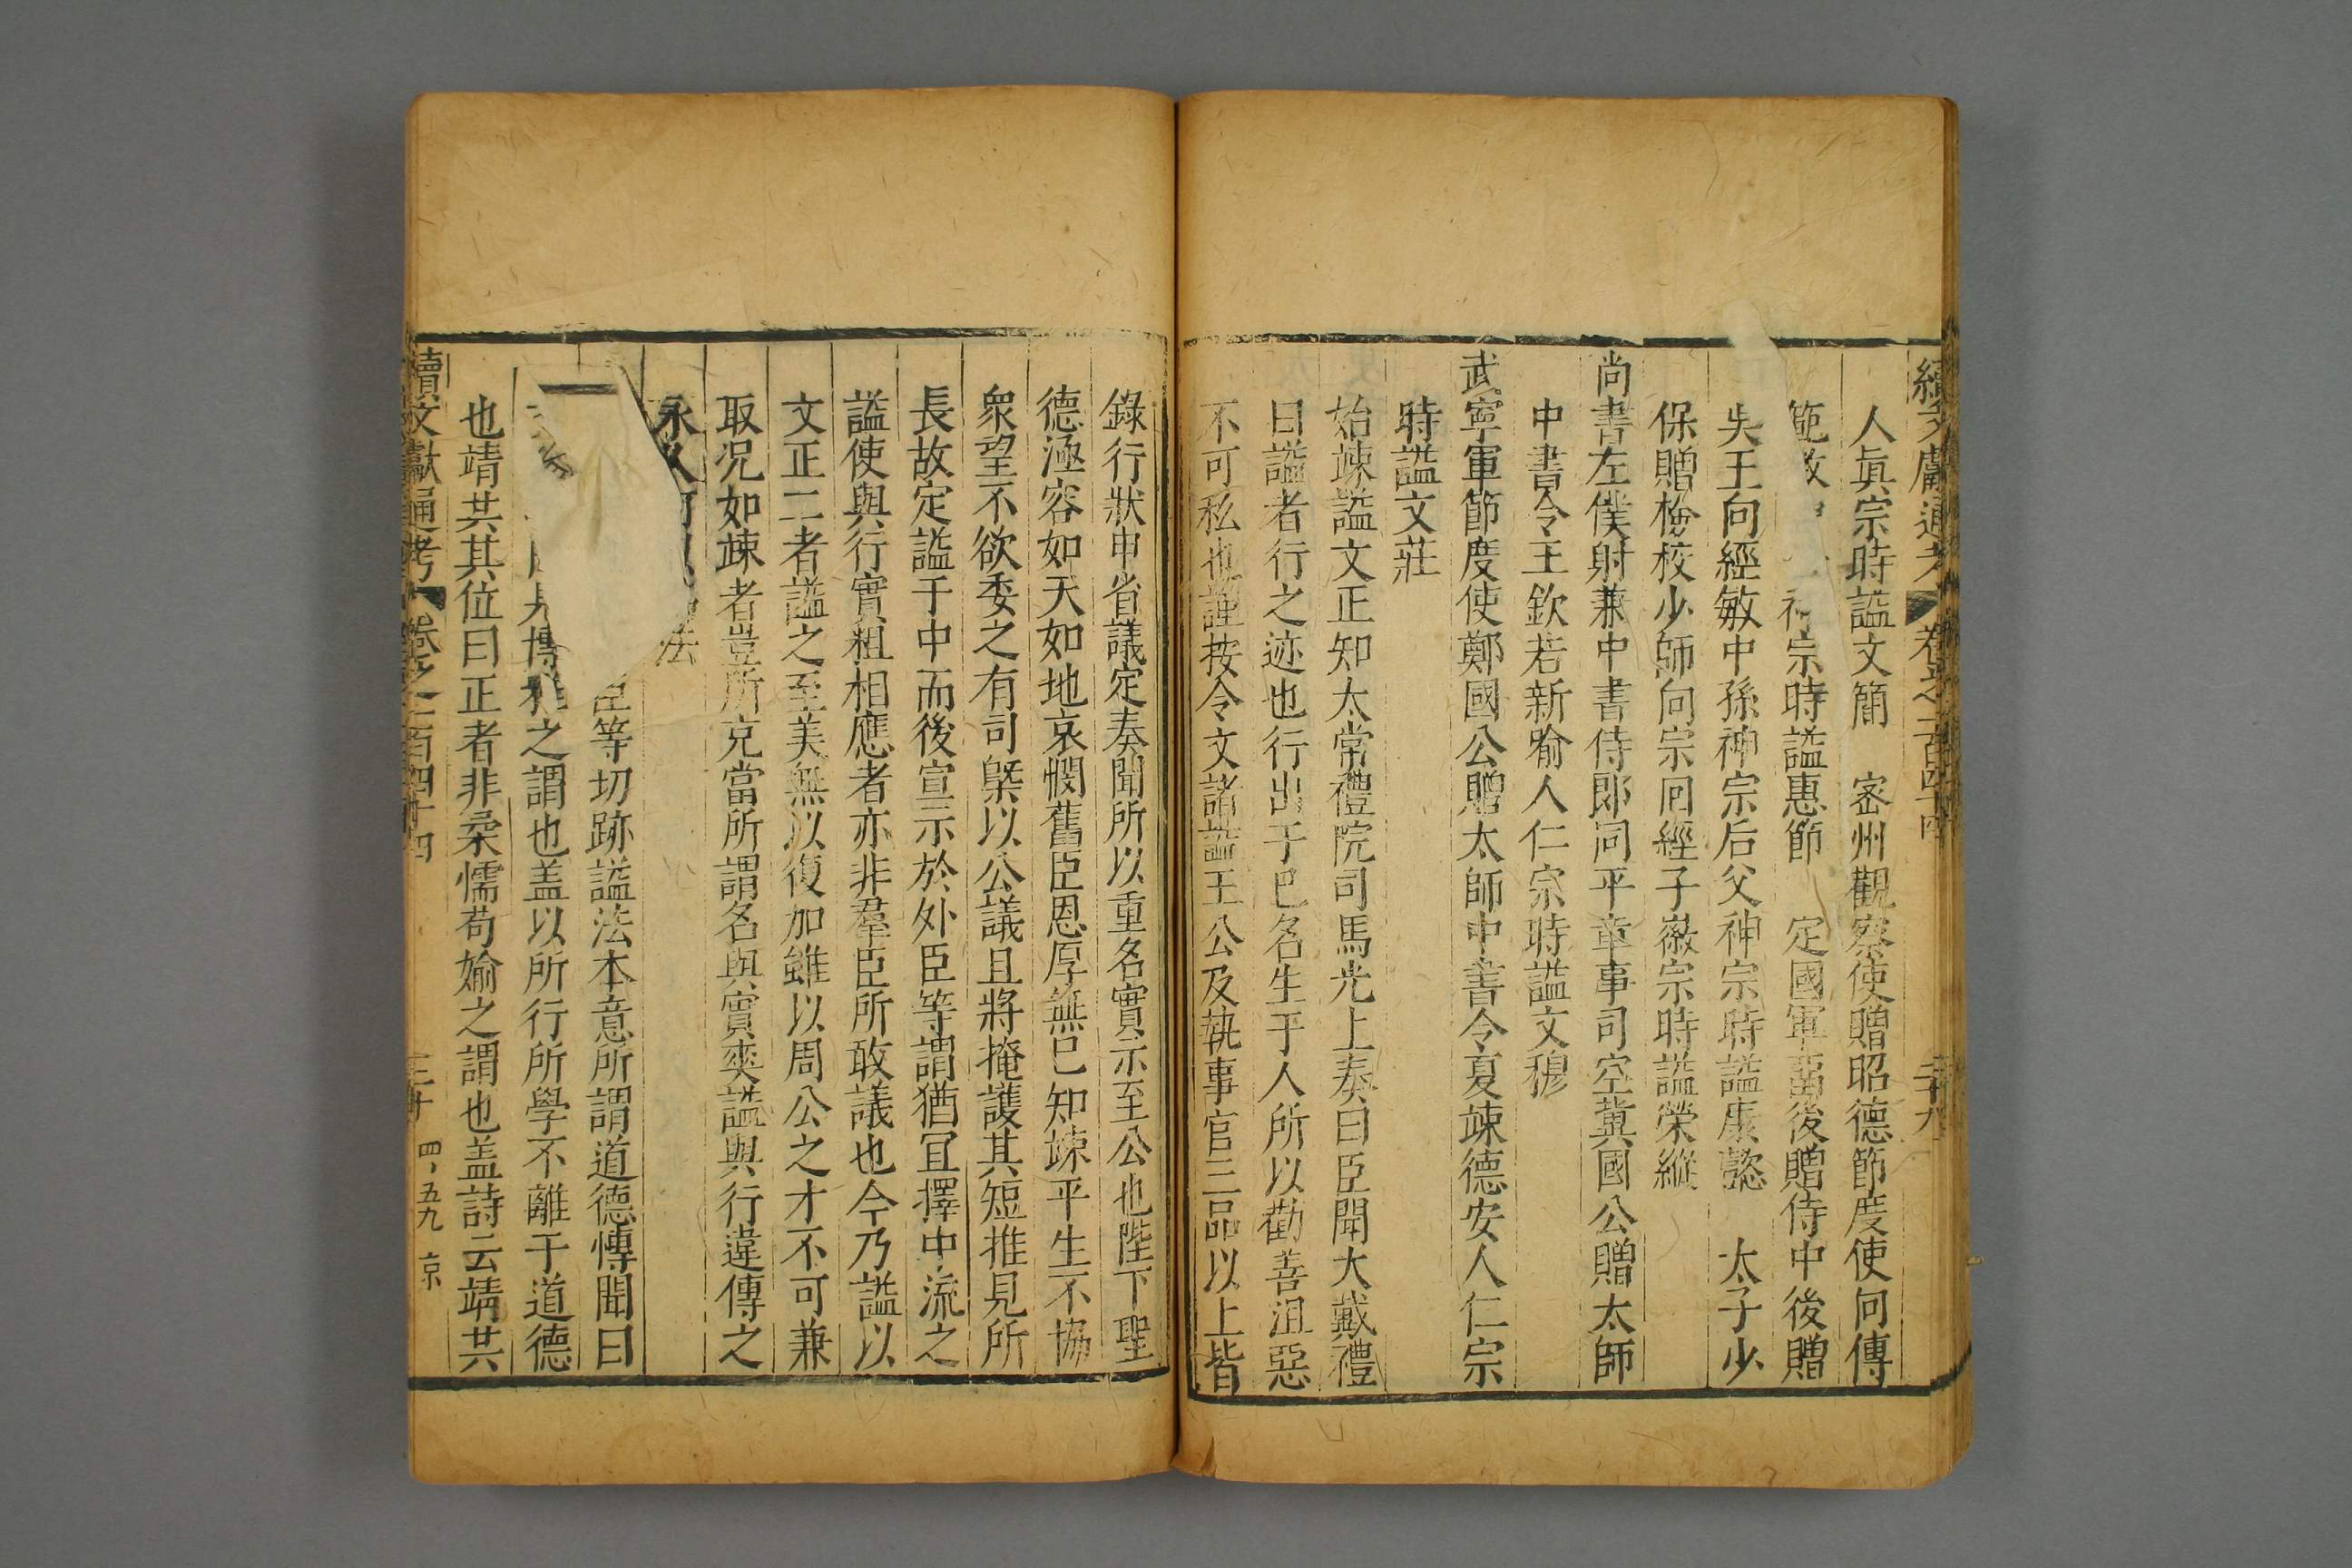 續文獻通考 卷之一百四十四
人眞宗時謚文簡 密州觀察使贈昭德節度使向傳
範敏 神宗時謚惠節 定國軍留後贈侍中後贈
吳王向經敏中孫神宗后父神宗時謚康懿 太子少
保贈檢校少師向宗回經子徽宗時謚榮縱
尚書左僕射兼中書侍郎同平章事司空冀國公贈太師
中書令王欽若新喻人仁宗時謚文穆
武寧軍節度使鄭國公贈太師中書令夏竦德安人仁宗
時謚文莊
始竦謚文正知太常禮院司馬光上奏曰臣聞大戴禮
曰謚者行之迹也行出于已名生于人所以勸善沮惡
不可私也謹按令文諸謚王公及執事官三品以上皆
錄行狀申省議定奏聞所以重名實示至公也陛下聖
德涵容如天如地哀憫舊臣恩厚無已知竦平生不協
衆望不欲委之有司槩以公議且將掩護其短推見所
長故定謚于中而後宣示於外臣等謂猶宜擇中流之
謚使與行實粗相應者亦非羣臣所敢議也今乃謚以
文正二者謚之至美無以復加雖以周公之才不可兼
取况如竦者豈所克當所謂名與實爽謚與行違傳之
永久 法
臣等切跡謚法本意所謂道德博聞曰
博 之謂也盖以所行所學不離于道德
也靖共其位曰正者非柔懦苟媮之謂也盖詩云靖共
續文獻通考 卷之一百四十四 三十 四、五九 京